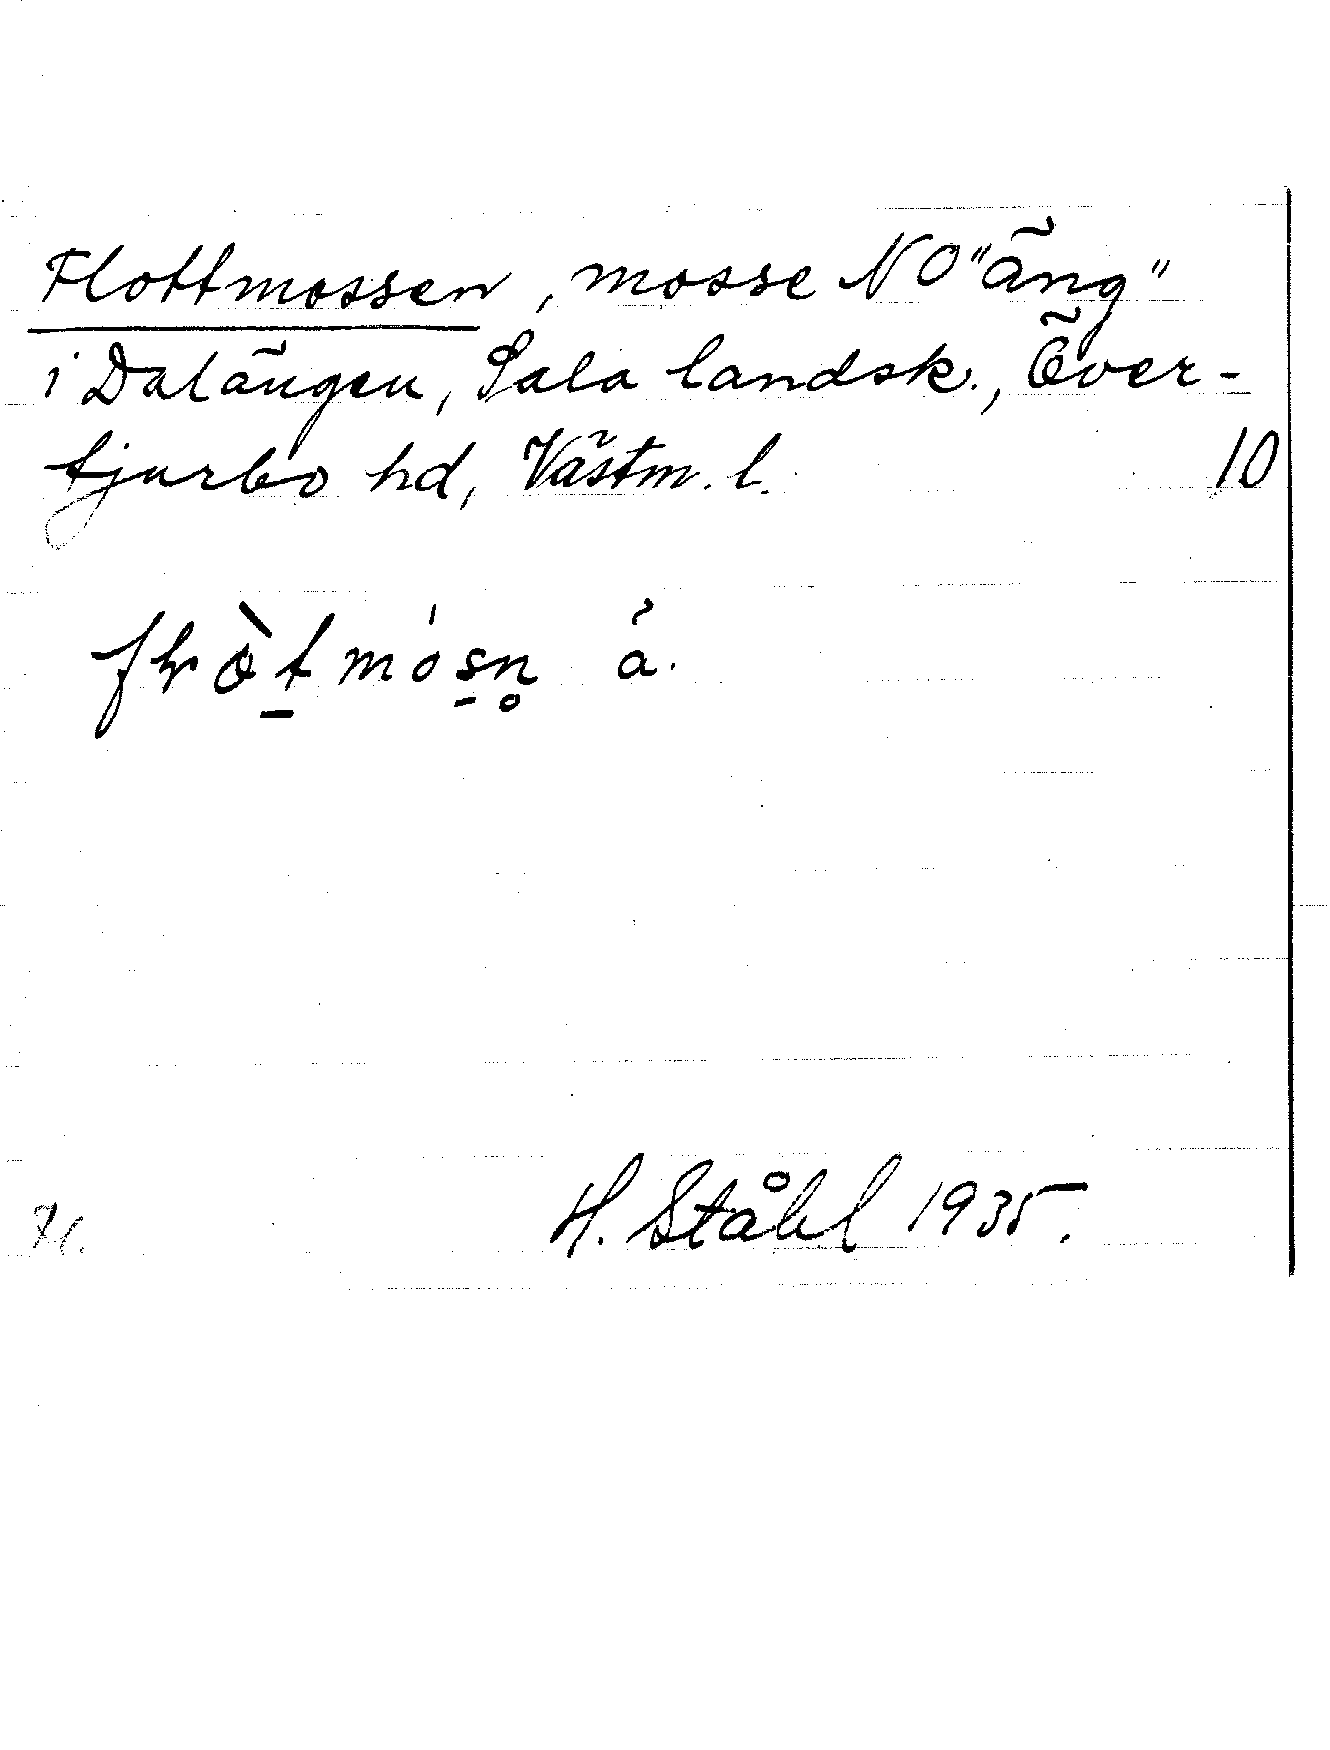 Flottmossen, mosse NO "äng"
i Dalängen, Sala landsk., Över-
tjurbo hd, Västm. l. 10
H. Ståhl 1935.